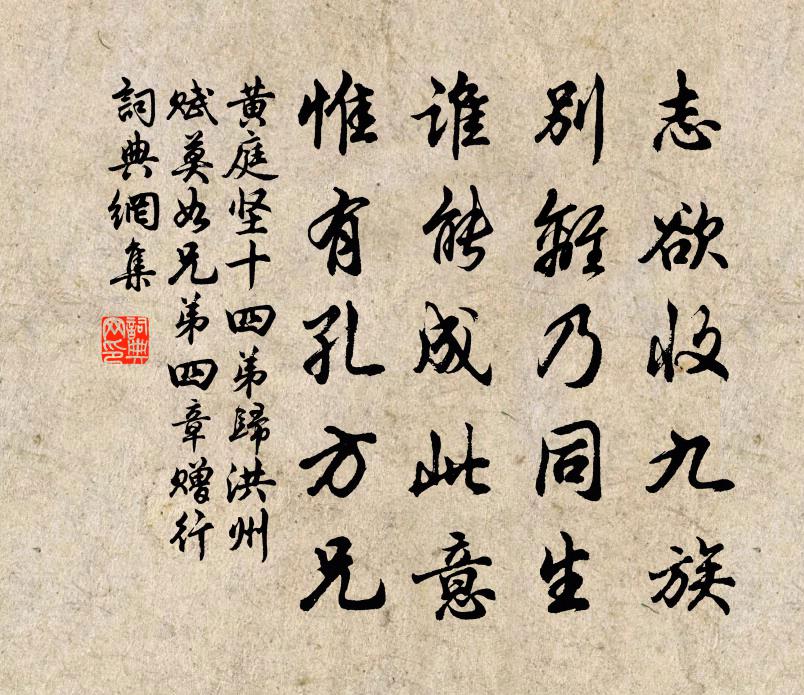 志欲收九族
別離乃同生
誰能成此意
惟有孔方兄
黃庭坚十四弟歸洪州
赋莫如兄弟四章赠行
詞典網集
詞典
网印